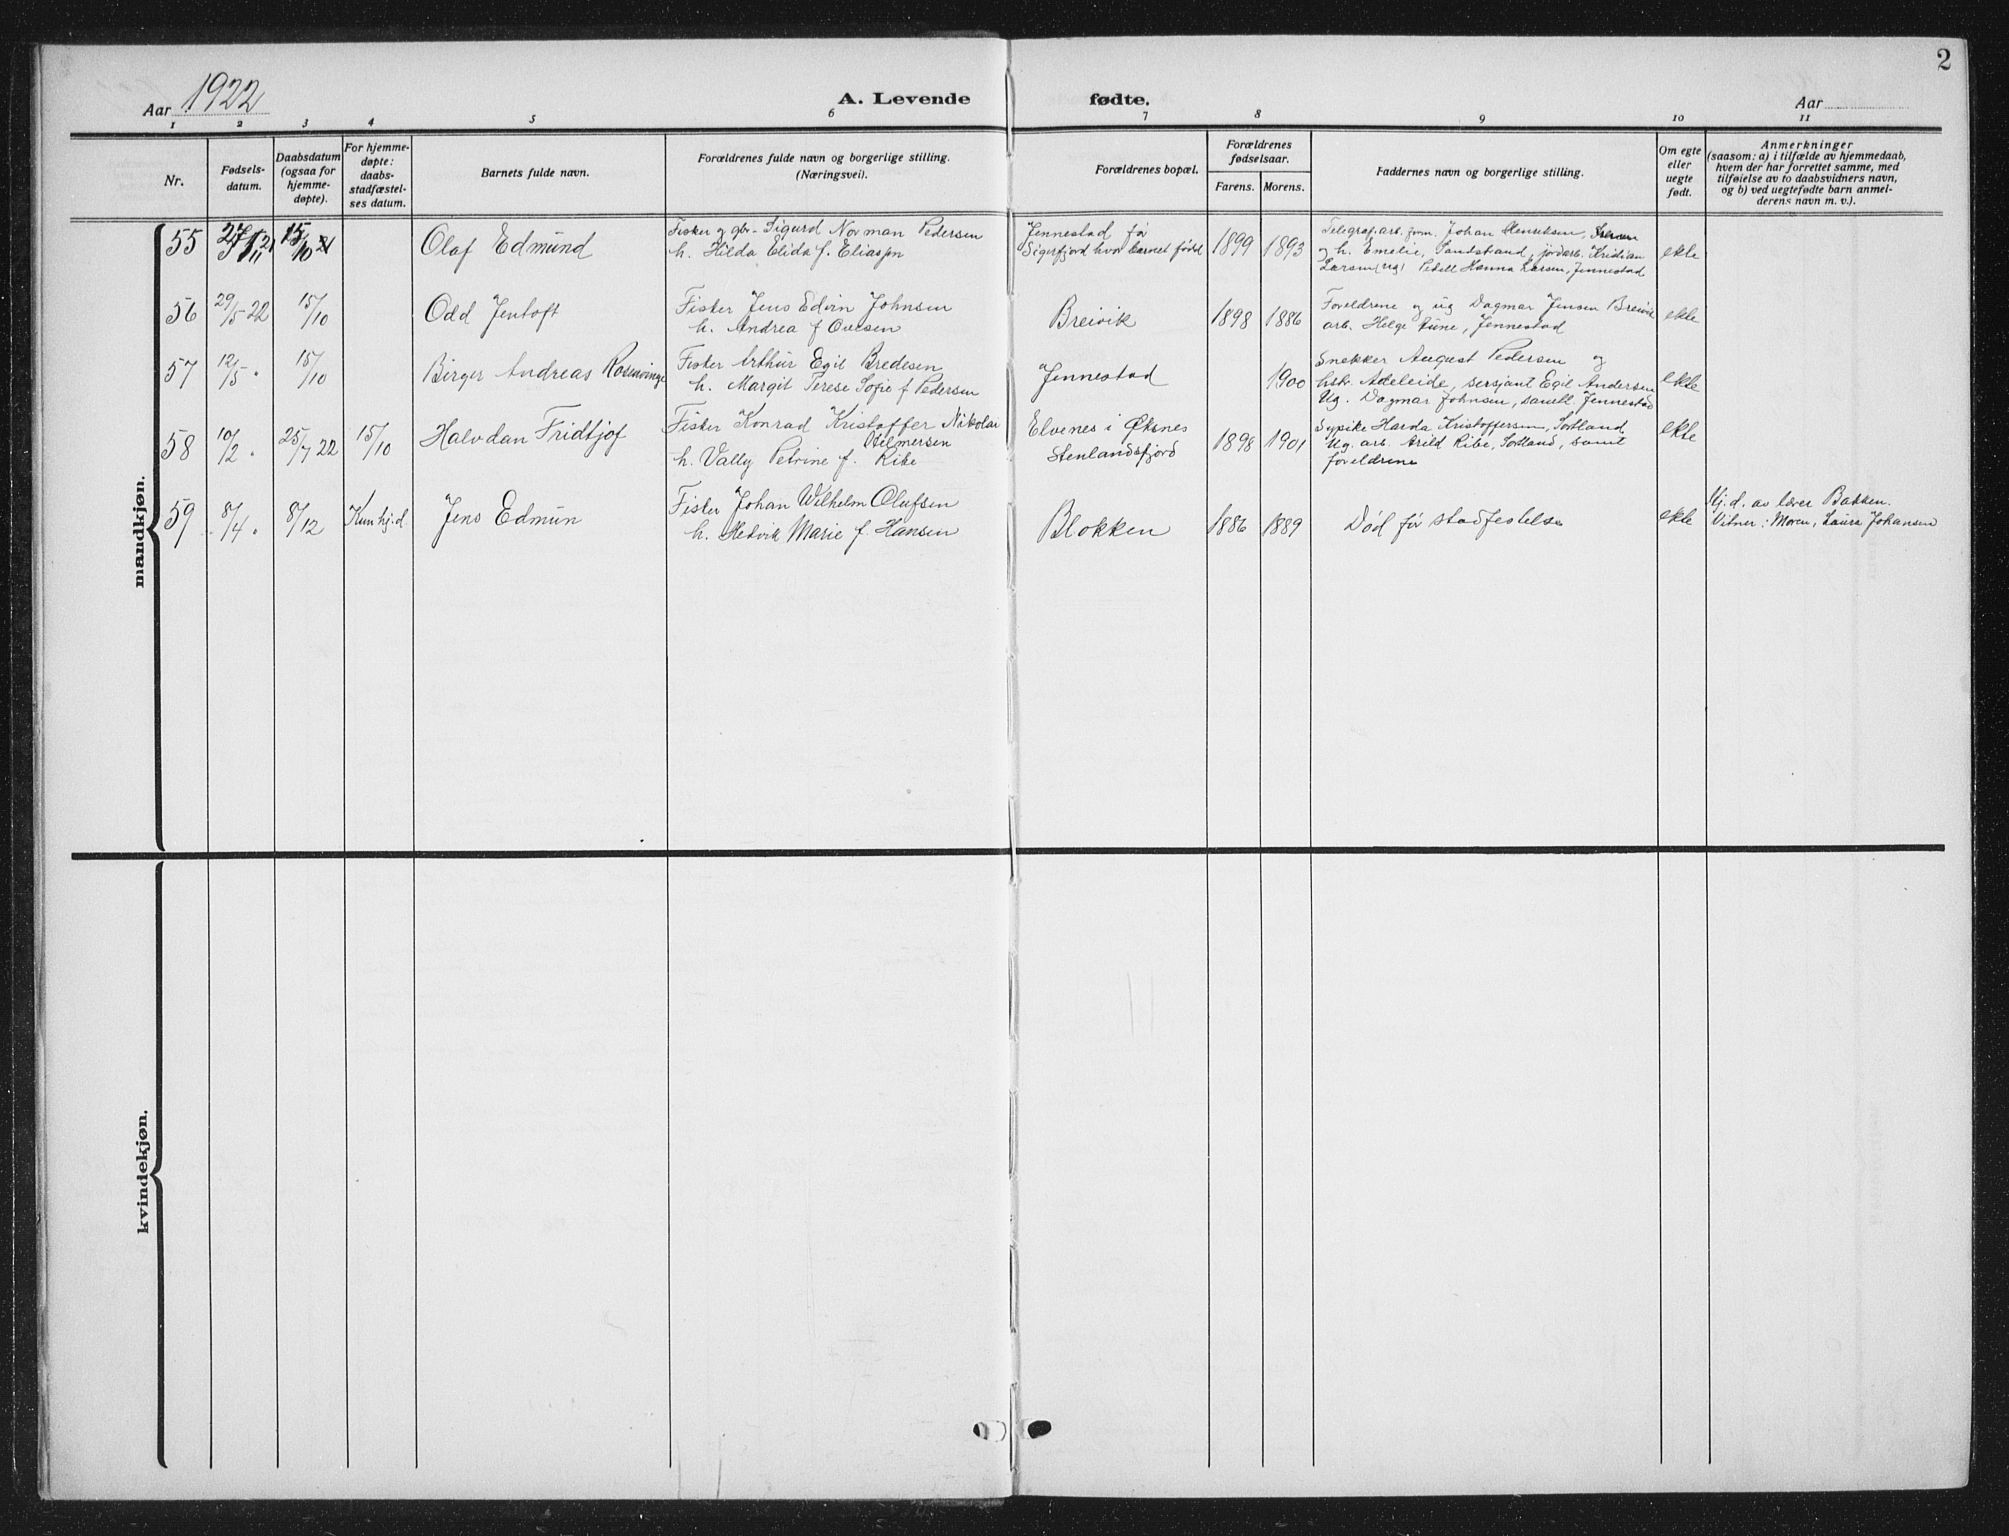 2
Aar 1922
A. Levende fødte.
Aar
1 2 3 4 5 6 7 8 9 10 11
Nr.
Fødsels-
datum.
Daabsdatum
(ogsaa for
hjemme-
døpte).
For hjemme-
døpte:
daabs-
stadfæstel-
ses datum.
Barnets fulde navn.
Forældrenes fulde navn og borgerlige stilling.
(Næringsvei).
Forældrenes bopæl.
Forældrenes
fødselsaar.
Farens. Morens.
Faddernes navn og borgerlige stilling.
Om egte
eller
uegte
født.
Anmerkninger
(saasom: a) i tilfælde av hjemmedaab,
hvem der har forrettet samme, med
tilføielse av to daabsvidners navn,
og b) ved uegtefødte barn anmel-
derens navn m. v.).
mandkjøn.
55
15/10
Olaf Edmund
Fisker og gbr. Sigurd Norman Pedersen
h. Hilda Elida f. Eliassen
Jennestad før
Sigerfjord hvor barnet født
1899 1893
Telegrafarb. Johan Henriksen,
og h. Emelie, Sandstrand, jordarb. Kristian
Larsen (ug) Hanna Larsen, Jennestad
ekte
56
29/5 22
15/10
Odd Jentoft
Fisker Jens Edvin Johnsen
h. Andrea f. Ovesen
Breivik
1898 1886
Foreldrene og ug Dagmar Jensen Breivik
arb. Helge Aune, Jennestad
ekte
57
12/5 "
15/10
Birger Andreas Rosenvinge
Fisker Arthur Egil Bredesen
h. Margit Terese Sofie f. Pedersen
Jennestad
1900
Snekker August Pedersen og
hstr. Adeleide, sersjant Egil Andersen
Ug. Dagmar Johnsen, samtl. Jennestad
ekte
58
10/2 "
25/7 22
15/10
Halvdan Fridtjof
Fisker Konrad Kristoffer Nikolai
Hilmersen
h. Vally Petrine f. Ribe
Elvenes i Øksnes
Stenlandsfjord
1898 1901
Sypike Harda Kristoffersen, Sortland.
Ug. arb. Arild Ribe, Sortland, samt
foreldrene
ekte
59
8/4 "
8/12
Kun hj.d.
Jens Edmun
Fisker Johan Wilhelm Olufsen
h. Hedvik Marie f. Hansen
Blokken
1886 1889
Død før stadfestelse
ekte
Hj.d. av lærer Bakken.
Vitner: Moren, Laura Johansen
kvindekjøn.